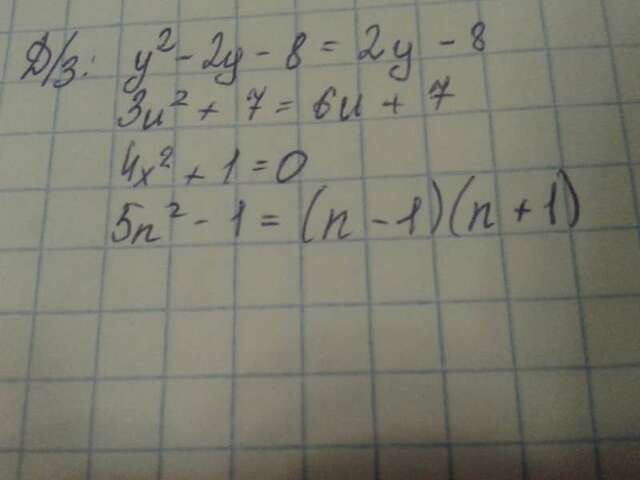 Д/з: y² - 2y - 8 = 2y - 8
3u² + 7 = 6u + 7
4x² + 1 = 0
5n² - 1 = (n - 1)(n + 1)